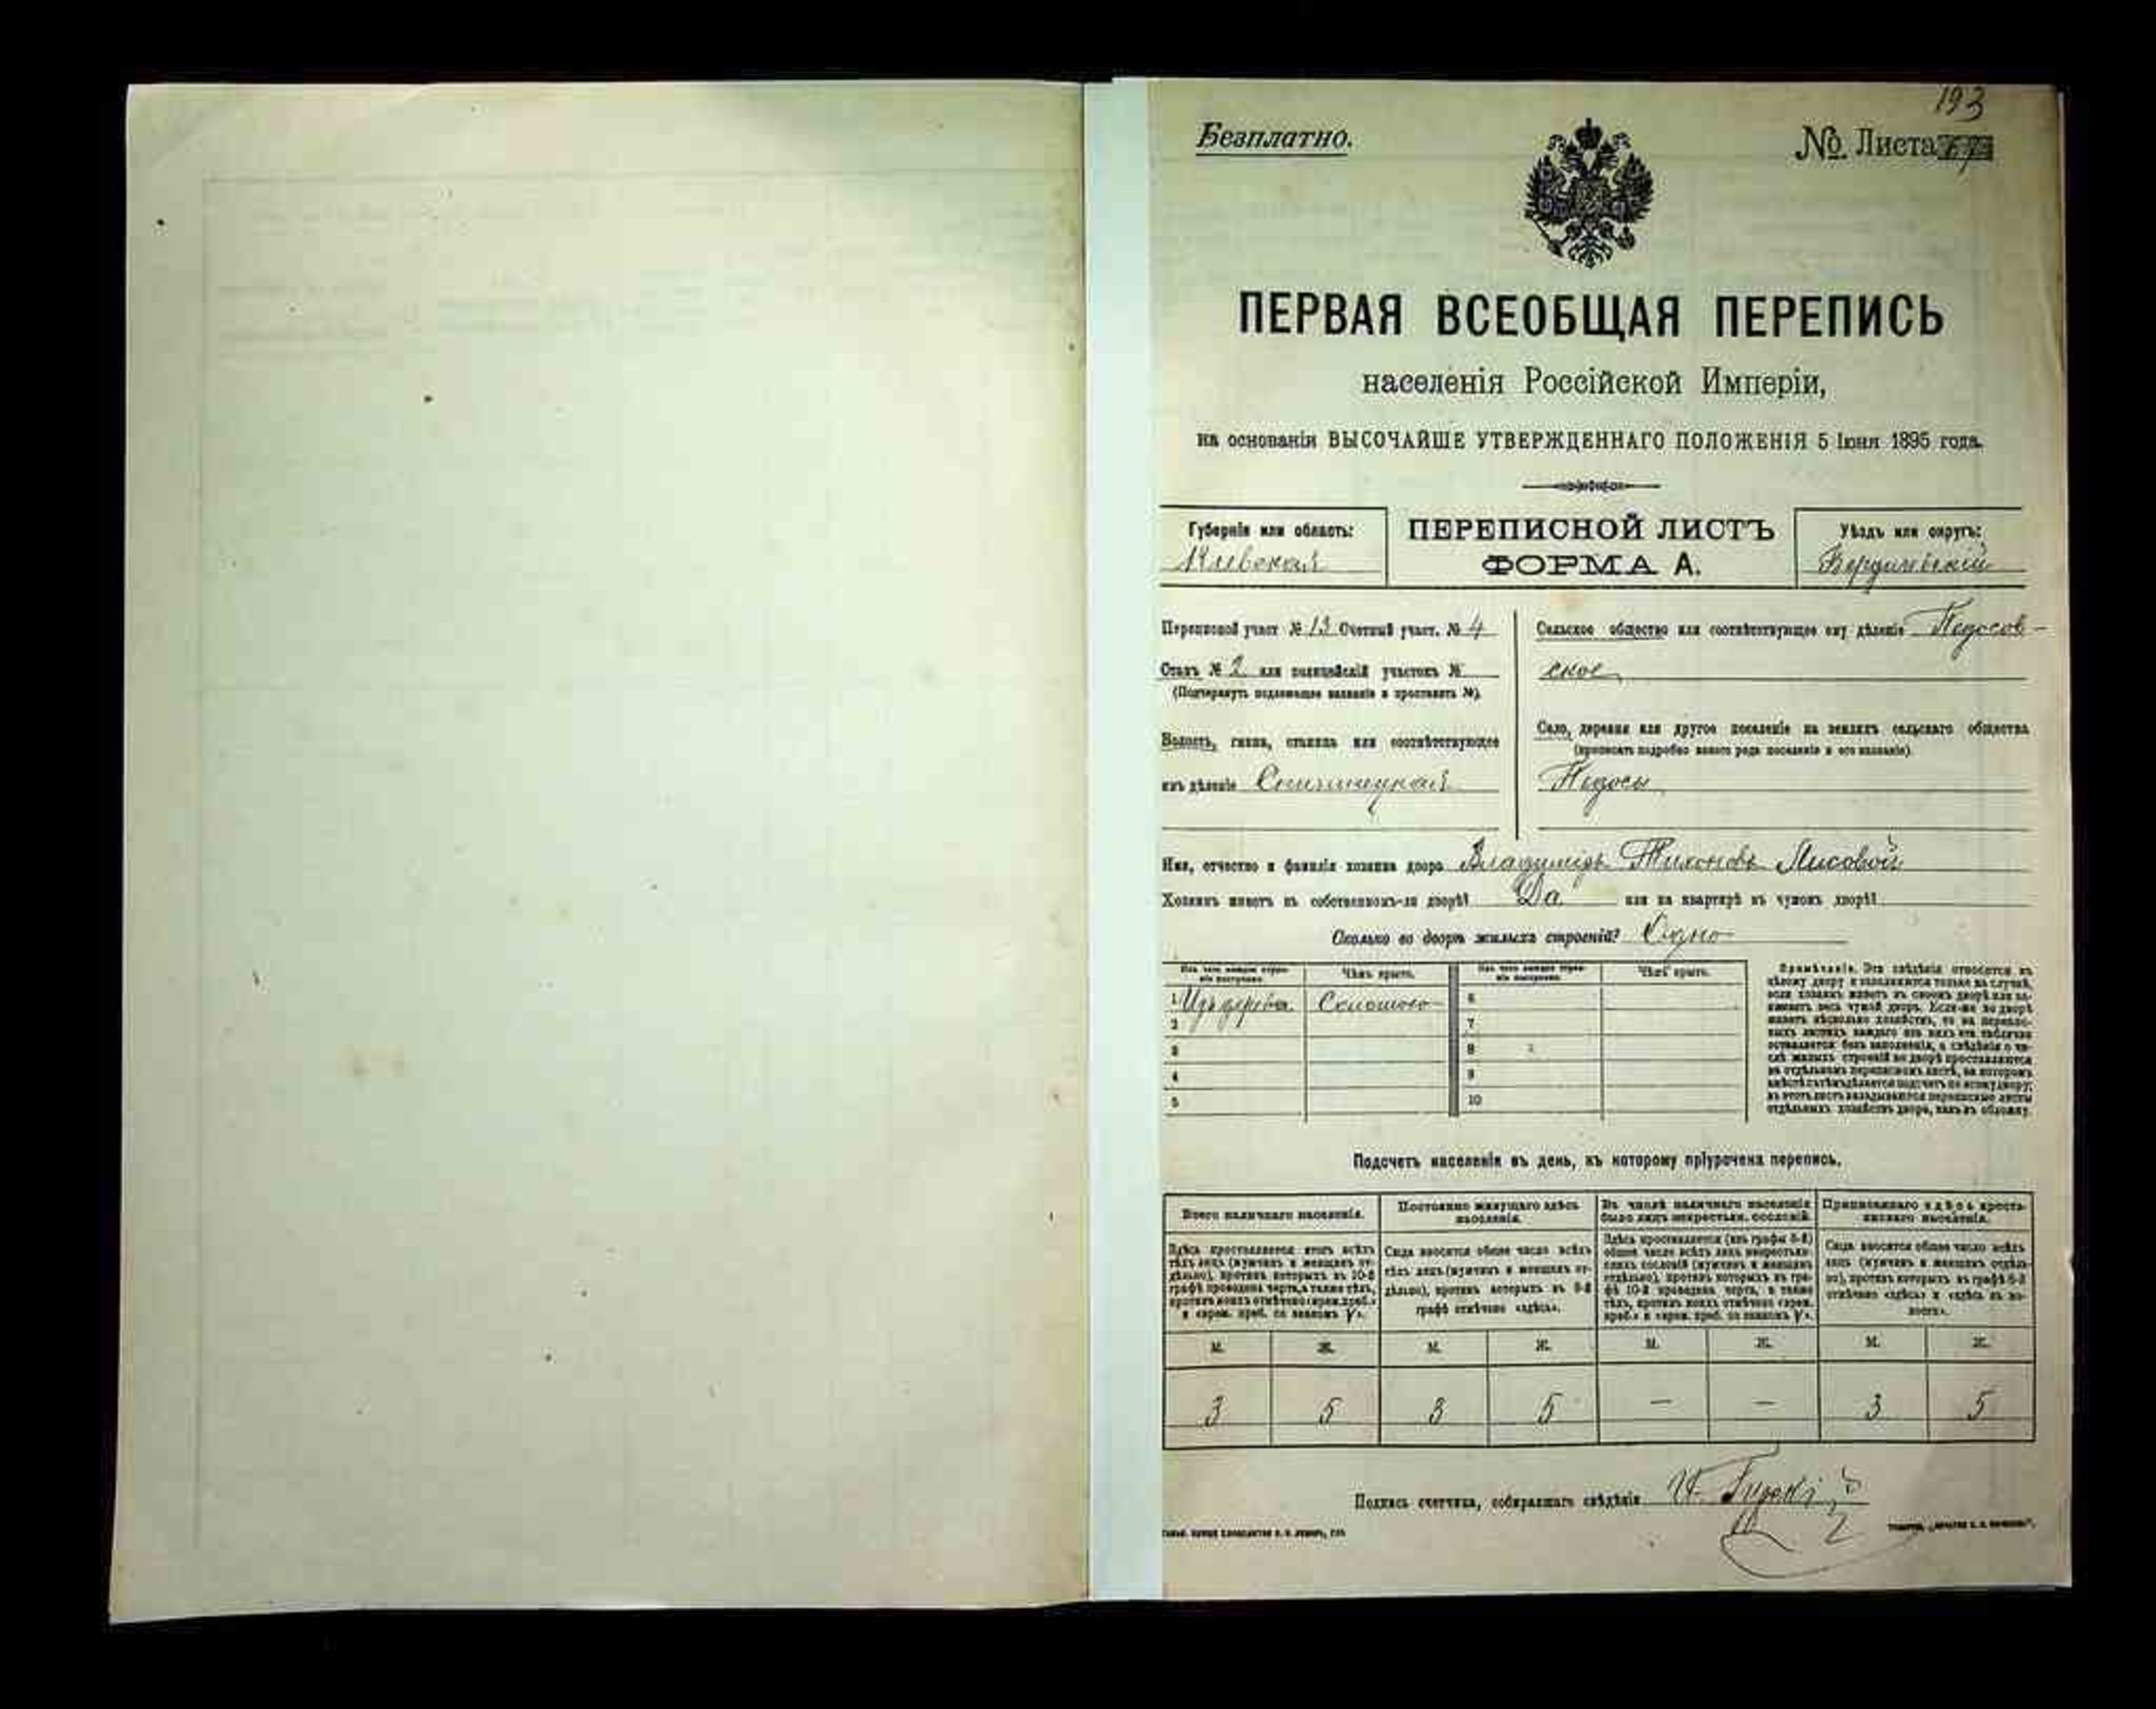 193
Безплатно.
№ Листа 67
ПЕРВАЯ ВСЕОБЩАЯ ПЕРЕПИСЬ
населенія Россійской Имперіи,
на основаніи ВЫСОЧАЙШЕ УТВЕРЖДЕННАГО ПОЛОЖЕНІЯ 5 Іюня 1895 года.
Губернія или область:
Кіевская
ПЕРЕПИСНОЙ ЛИСТЪ
ФОРМА А.
Уѣздъ или округъ:
Бердичевскій
Переписной участ. № 13 Счетный участ. № 4
Станъ № 2 или полицейскій участокъ №
(Подчеркнуть подлежащее названіе и проставить №).
Волость, гмина, станица или соотвѣтствующее
имъ дѣленіе Спичинецкая
Сельское общество или соотвѣтствующее ему дѣленіе Педосов-
ское
Село, деревня или другое поселеніе на земляхъ сельскаго общества
(прописать подробно какого рода поселеніе и его названіе).
Педосы
Имя, отчество и фамилія хозяина двора Владиміръ Тихоновъ Лисовой
Хозяинъ живетъ въ собственномъ-ли дворѣ? Да или на квартирѣ въ чужомъ дворѣ?
Сколько во дворѣ жилыхъ строеній? Одно
Изъ чего каждое строеніе построено. Чѣмъ крыто. Изъ чего каждое строеніе построено. Чѣмъ крыто.
1 Изъ дерева Соломою 6
2 7
3 8
4 9
5 10
Примѣчаніе. Эти свѣдѣнія относятся къ
цѣлому двору и заполняются только въ случаѣ,
если хозяинъ живетъ въ своемъ дворѣ или за-
нимаетъ весь чужой дворъ. Если-же во дворѣ
живетъ нѣсколько хозяйствъ, то на перепис-
ныхъ листахъ каждаго изъ нихъ эта табличка
оставляется безъ заполненія, а свѣдѣнія о чи-
слѣ жилыхъ строеній во дворѣ проставляются
на отдѣльномъ переписномъ листѣ, на которомъ
вмѣстѣ съ тѣмъ дѣлается подсчетъ по всему двору;
въ этотъ листъ вкладываются переписные листы
отдѣльныхъ хозяйствъ двора, какъ въ обложку.
Подсчетъ населенія въ день, къ которому пріурочена перепись.
Всего наличнаго населенія.
Здѣсь проставляется итогъ всѣхъ
тѣхъ лицъ (мужчинъ и женщинъ от-
дѣльно), противъ которыхъ въ 10-й
графѣ проведена черта, а также тѣхъ,
противъ коихъ отмѣчено «врем. преб.»
Постоянно живущаго здѣсь
населенія.
Сюда вносится общее число всѣхъ
тѣхъ лицъ (мужчинъ и женщинъ от-
дѣльно), противъ которыхъ въ 9-й
графѣ отмѣчено «здѣсь».
Въ числѣ наличнаго населенія
было лицъ некрестьян. сословій.
Здѣсь проставляется (изъ графы 4-й)
общее число всѣхъ лицъ некрестьян-
скихъ сословій (мужчинъ и женщинъ
отдѣльно), противъ которыхъ въ гра-
фѣ 10-й проведена черта, а также
тѣхъ, противъ коихъ отмѣчено «врем.
Приписаннаго здѣсь кресть-
янскаго населенія.
Сюда вносится общее число всѣхъ
лицъ (мужчинъ и женщинъ отдѣль-
но), противъ которыхъ въ графѣ 8-й
отмѣчено «здѣсь» и «здѣсь въ во-
лости».
М. Ж. М. Ж. М. Ж. М. Ж.
3 5 3 5 — — 3 5
Подпись счетчика, собиравшаго свѣдѣнія